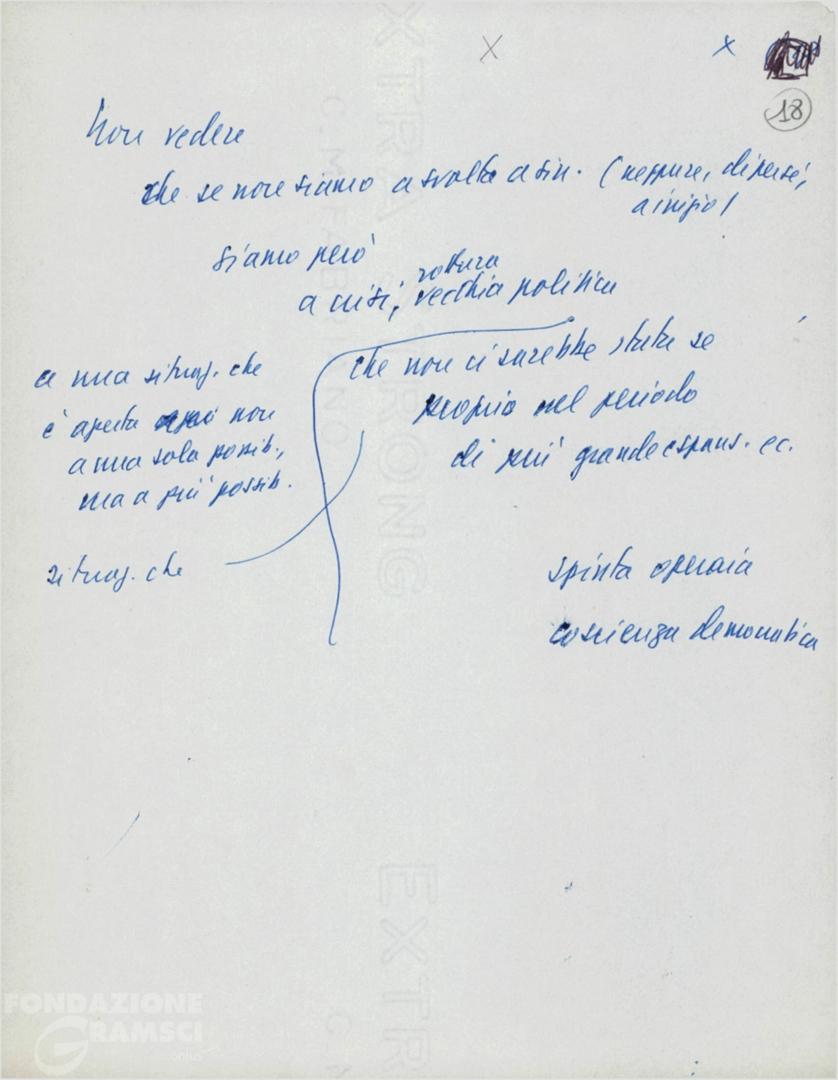 X x
18
Non vedere
che se non siamo a svolta a sin. (neppure, di per sé,
a inizio)
siamo però
rottura
a crisi, vecchia politica
che non ci sarebbe stata se
proprio nel periodo
di più grande espans. ec.
a una situaz. che
è aperta non
a una sola possib.,
ma a più possib.
situaz. che
spinta operaia
coscienza democratica
EXTRA STRONG
C. M. FABRIANO
EXTR
FONDAZIONE
GRAMSCI
onlus